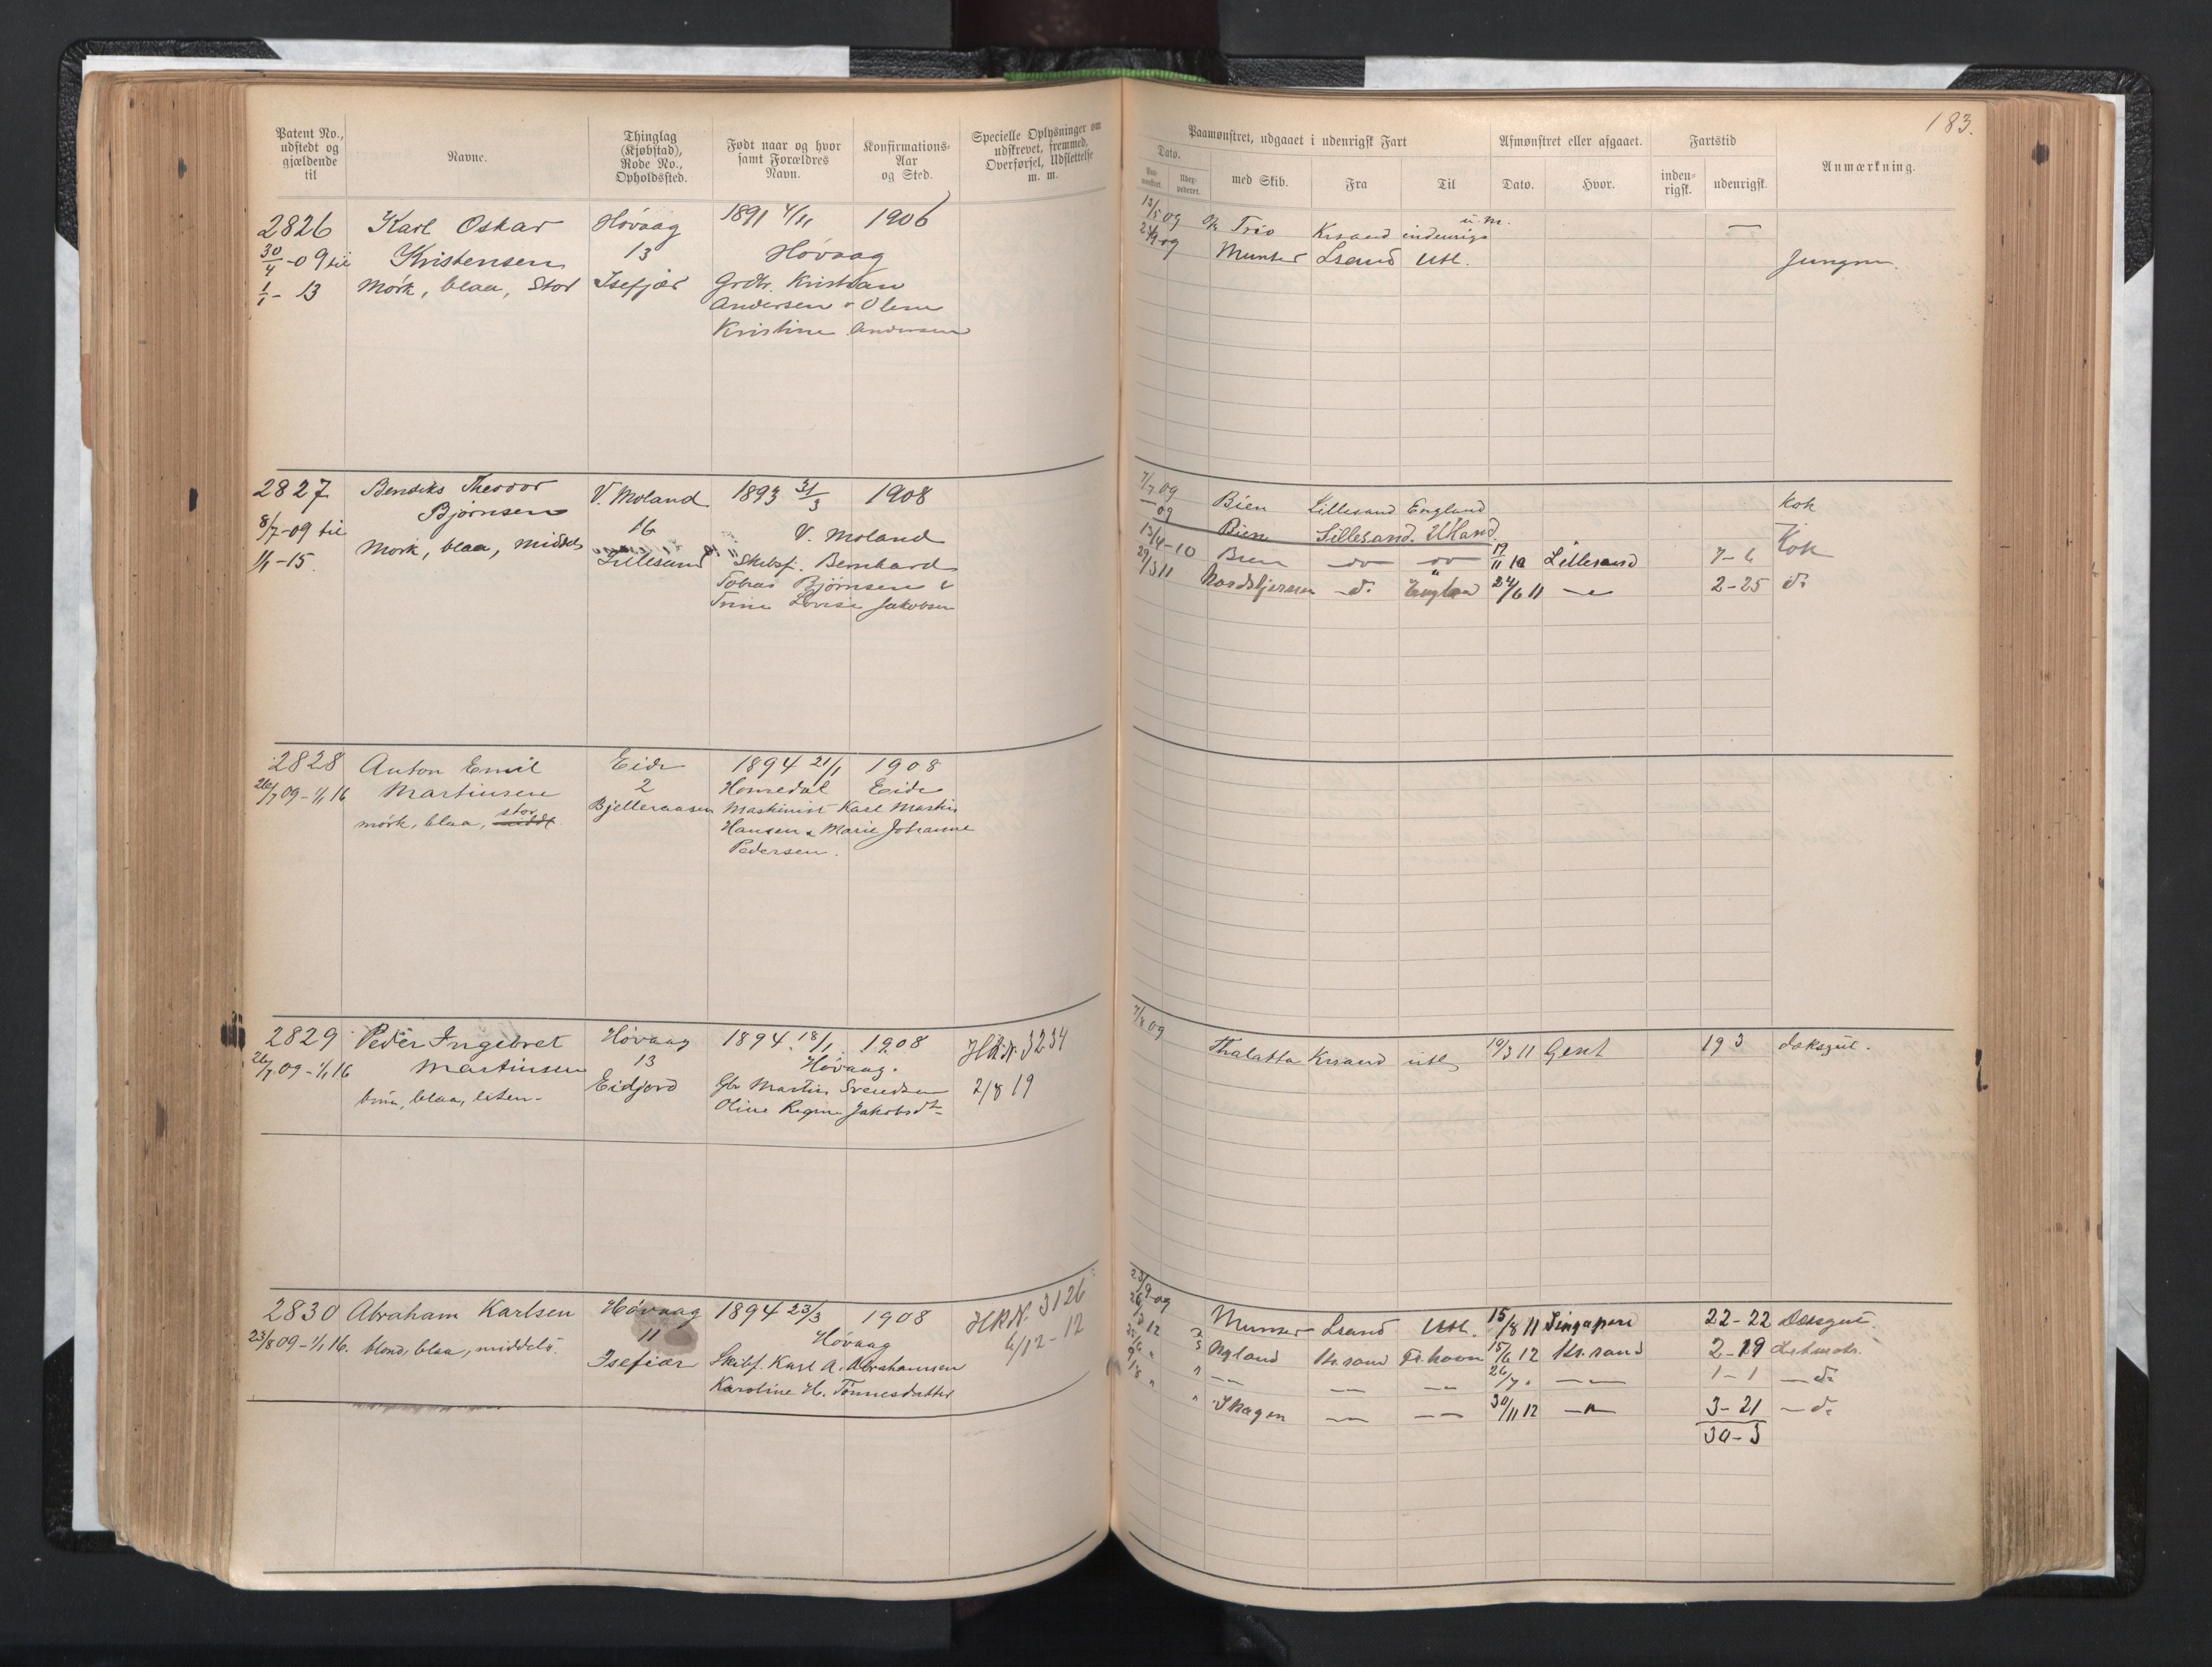 183.
Patent No., udstedt og gjældende til
Navne.
Thinglag (Kjøbstad), Rode No., Opholdssted.
Født naar og hvor samt Forældres Navn.
Konfirmations-Aar og Sted.
Specielle Oplysninger om udskrevet, fremmed, Overførsel, Udslettelse m. m.
Paamønstret, udgaaet i udenrigsk Fart
Dato.
med Skib.
Fra
Til
Afmønstret eller afgaaet.
Dato.
Hvor.
Fartstid
inden-rigsk.
udenrigsk.
Anmærkning.
2826 Karl Oskar Høvaag 1891 4/11 1906
30/4-09 til Kristensen 13 Høvaag
1/1-13 Mørk, blaa, Stor Isefjær Grdbr. Kristian
Andersen & Olene
Kristine Andersen
12/5 09 Trio Krsand indenrigs u.m. —
09 Munter Lsand Utl. Jungm.
2827 Bendiks Theodor V. Moland 1893 31/3 1908
Bjørnsen
8/7-09 til 16 V. Moland
1/1-15. Mørk, blaa, middels Lillesand Skibsf. Bernhard
Tobias Bjørnsen &
Trine Lovise Jakobsen
7/7 09 Bien Lillesand England Kok
09 Bien Lillesand. Utland. Kok
13/4-10 Bien — do — — do — 17/11 10 Lillesand 7-6
29/3 11 Nordstjernen — do England 24/6 11 — " — 2-25 do
2828 Anton Emil Eide 1894 21/1 1908
26/7 09-1/1 16 Martinsen 2 Homedal Eide
mørk, blaa, stor middl. Bjelleraasen Maskinist Karl Martin
Hansen & Marie Johanne
Pedersen.
2829 Peder Ingebret Høvaag 1894. 18/1 1908 HR.N. 3234
26/7 09-1/1 16 Martinsen 13 Høvaag.
brun, blaa, liten- Eidjord Gbr Martin Svendsen 2/8 19
Oline Regine Jakobsdtr
7/8 09 Thalatta Krsand utl 10/3 11 Gent 19 3 daksgut.
2830 Abraham Karlsen Høvaag 1894 23/3 1908 HR.N. 3126
23/8 09-1/1 16. blond, blaa, middels. 11 Høvaag 6/12-12
Isefiær Skibsf. Karl A. Abrahamsen
Karoline H. Tønnesdatter
23/9-09 Munter Lsand Utl. 15/8 11 Singapore 22-22 Dæksgut.
Nyland Kr.sand Fr.havn 15/6 12 Kr.sand 2-19
— — — — 26/7 " — " — 1-1 — do
Skagen — — — — 30/11 12 — " — 3-21 — do
30-3